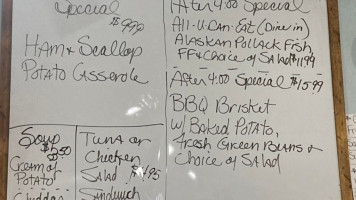 Special
$9.99
Ham & Scallop
Potato Casserole
After 4:00 Special
All-U-Can-Eat (Dine in)
Alaskan Pollack Fish,
FF & Choice of Salad $11.99
After 4:00 Special $15.99
BBQ Brisket
w/ Baked Potato,
fresh Green Beans &
Choice of Salad
Soup
$2.50
Cream of
Potato
Cheddar
Tuna or
Chicken
Salad $4.95
Sandwich